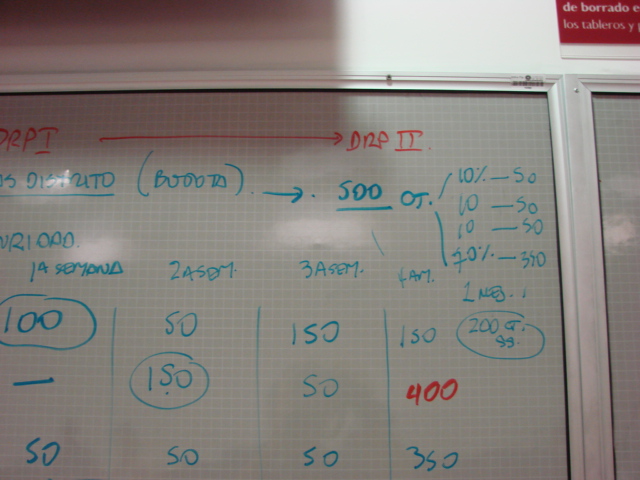 de borrado e
los tableros y p
DRP I → DRP II.
AS DISTRITO (BOGOTA). → . 500 OT.
10% — 50
10 — 50
10 — 50
70% — 350
1ª SEMANA 2A SEM. 3A SEM.
100 50 150 150 200 OT.
— 150 50 400
50 50 50 350